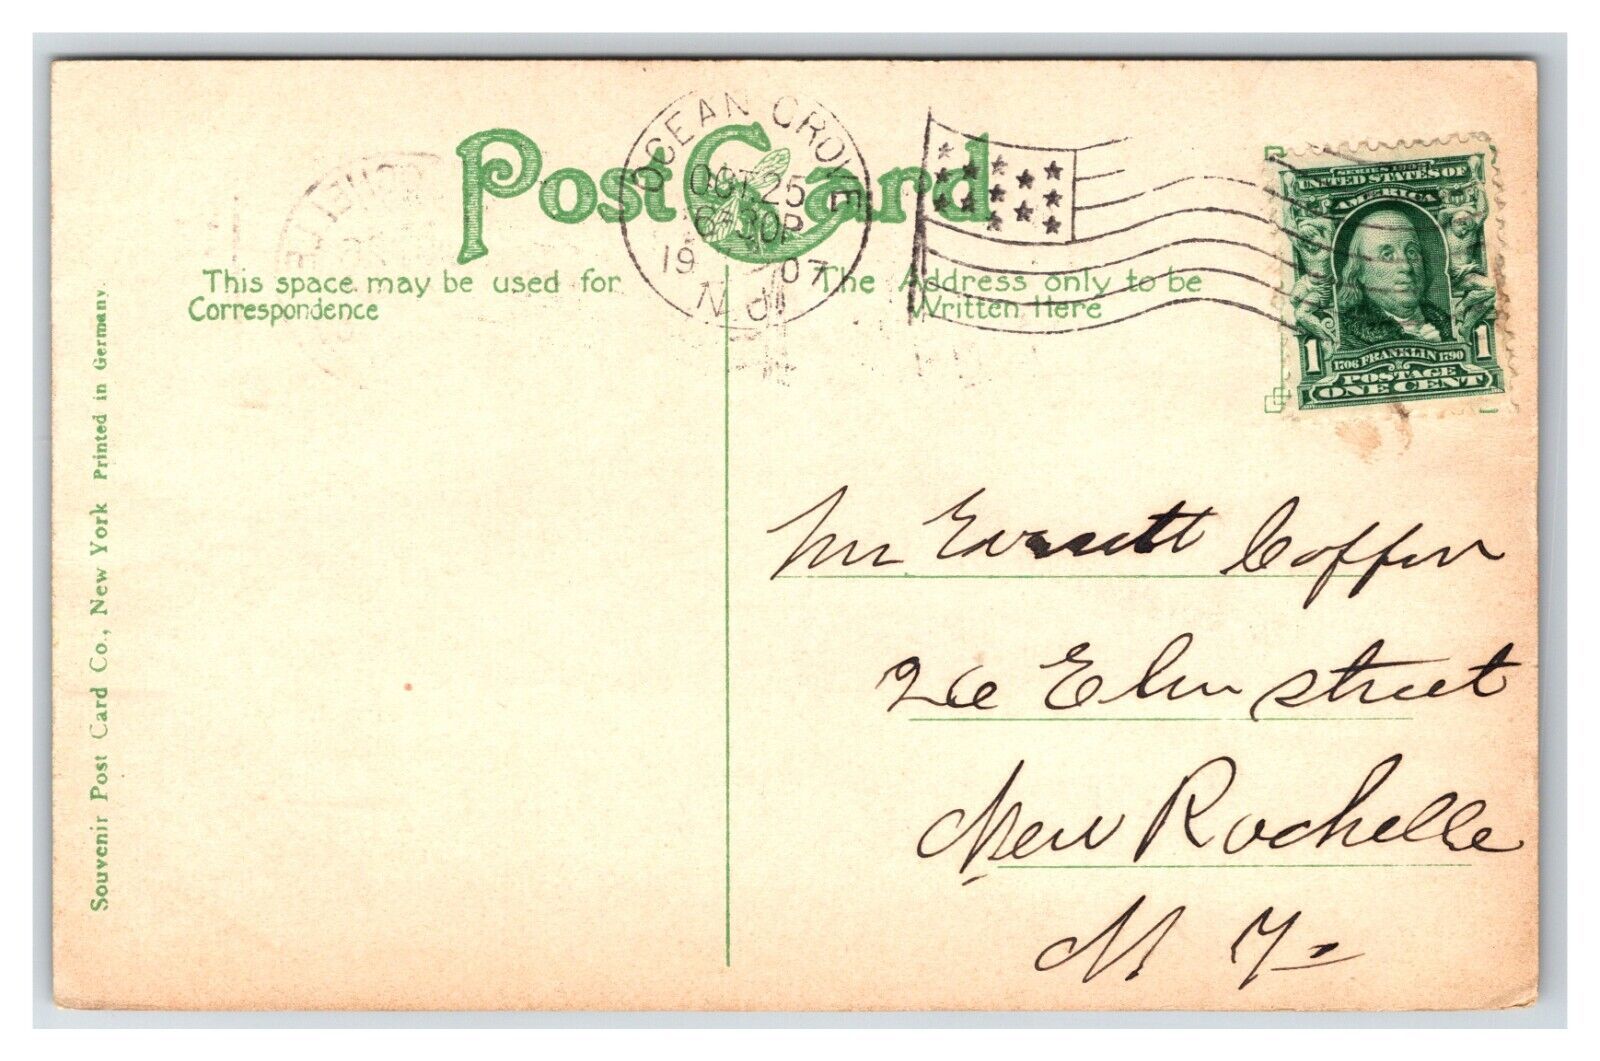 Post Card
OCEAN GROVE
OCT 25
6 30P
19 07
N.J.
This space may be used for
Correspondence
The Address only to be
Written Here
UNITED STATES OF
AMERICA
1 1706 FRANKLIN 1790 1
POSTAGE
ONE CENT
Mr Everett Coffin
26 Elm Street
New Rochelle
N Y
Souvenir Post Card Co., New York Printed in Germany.